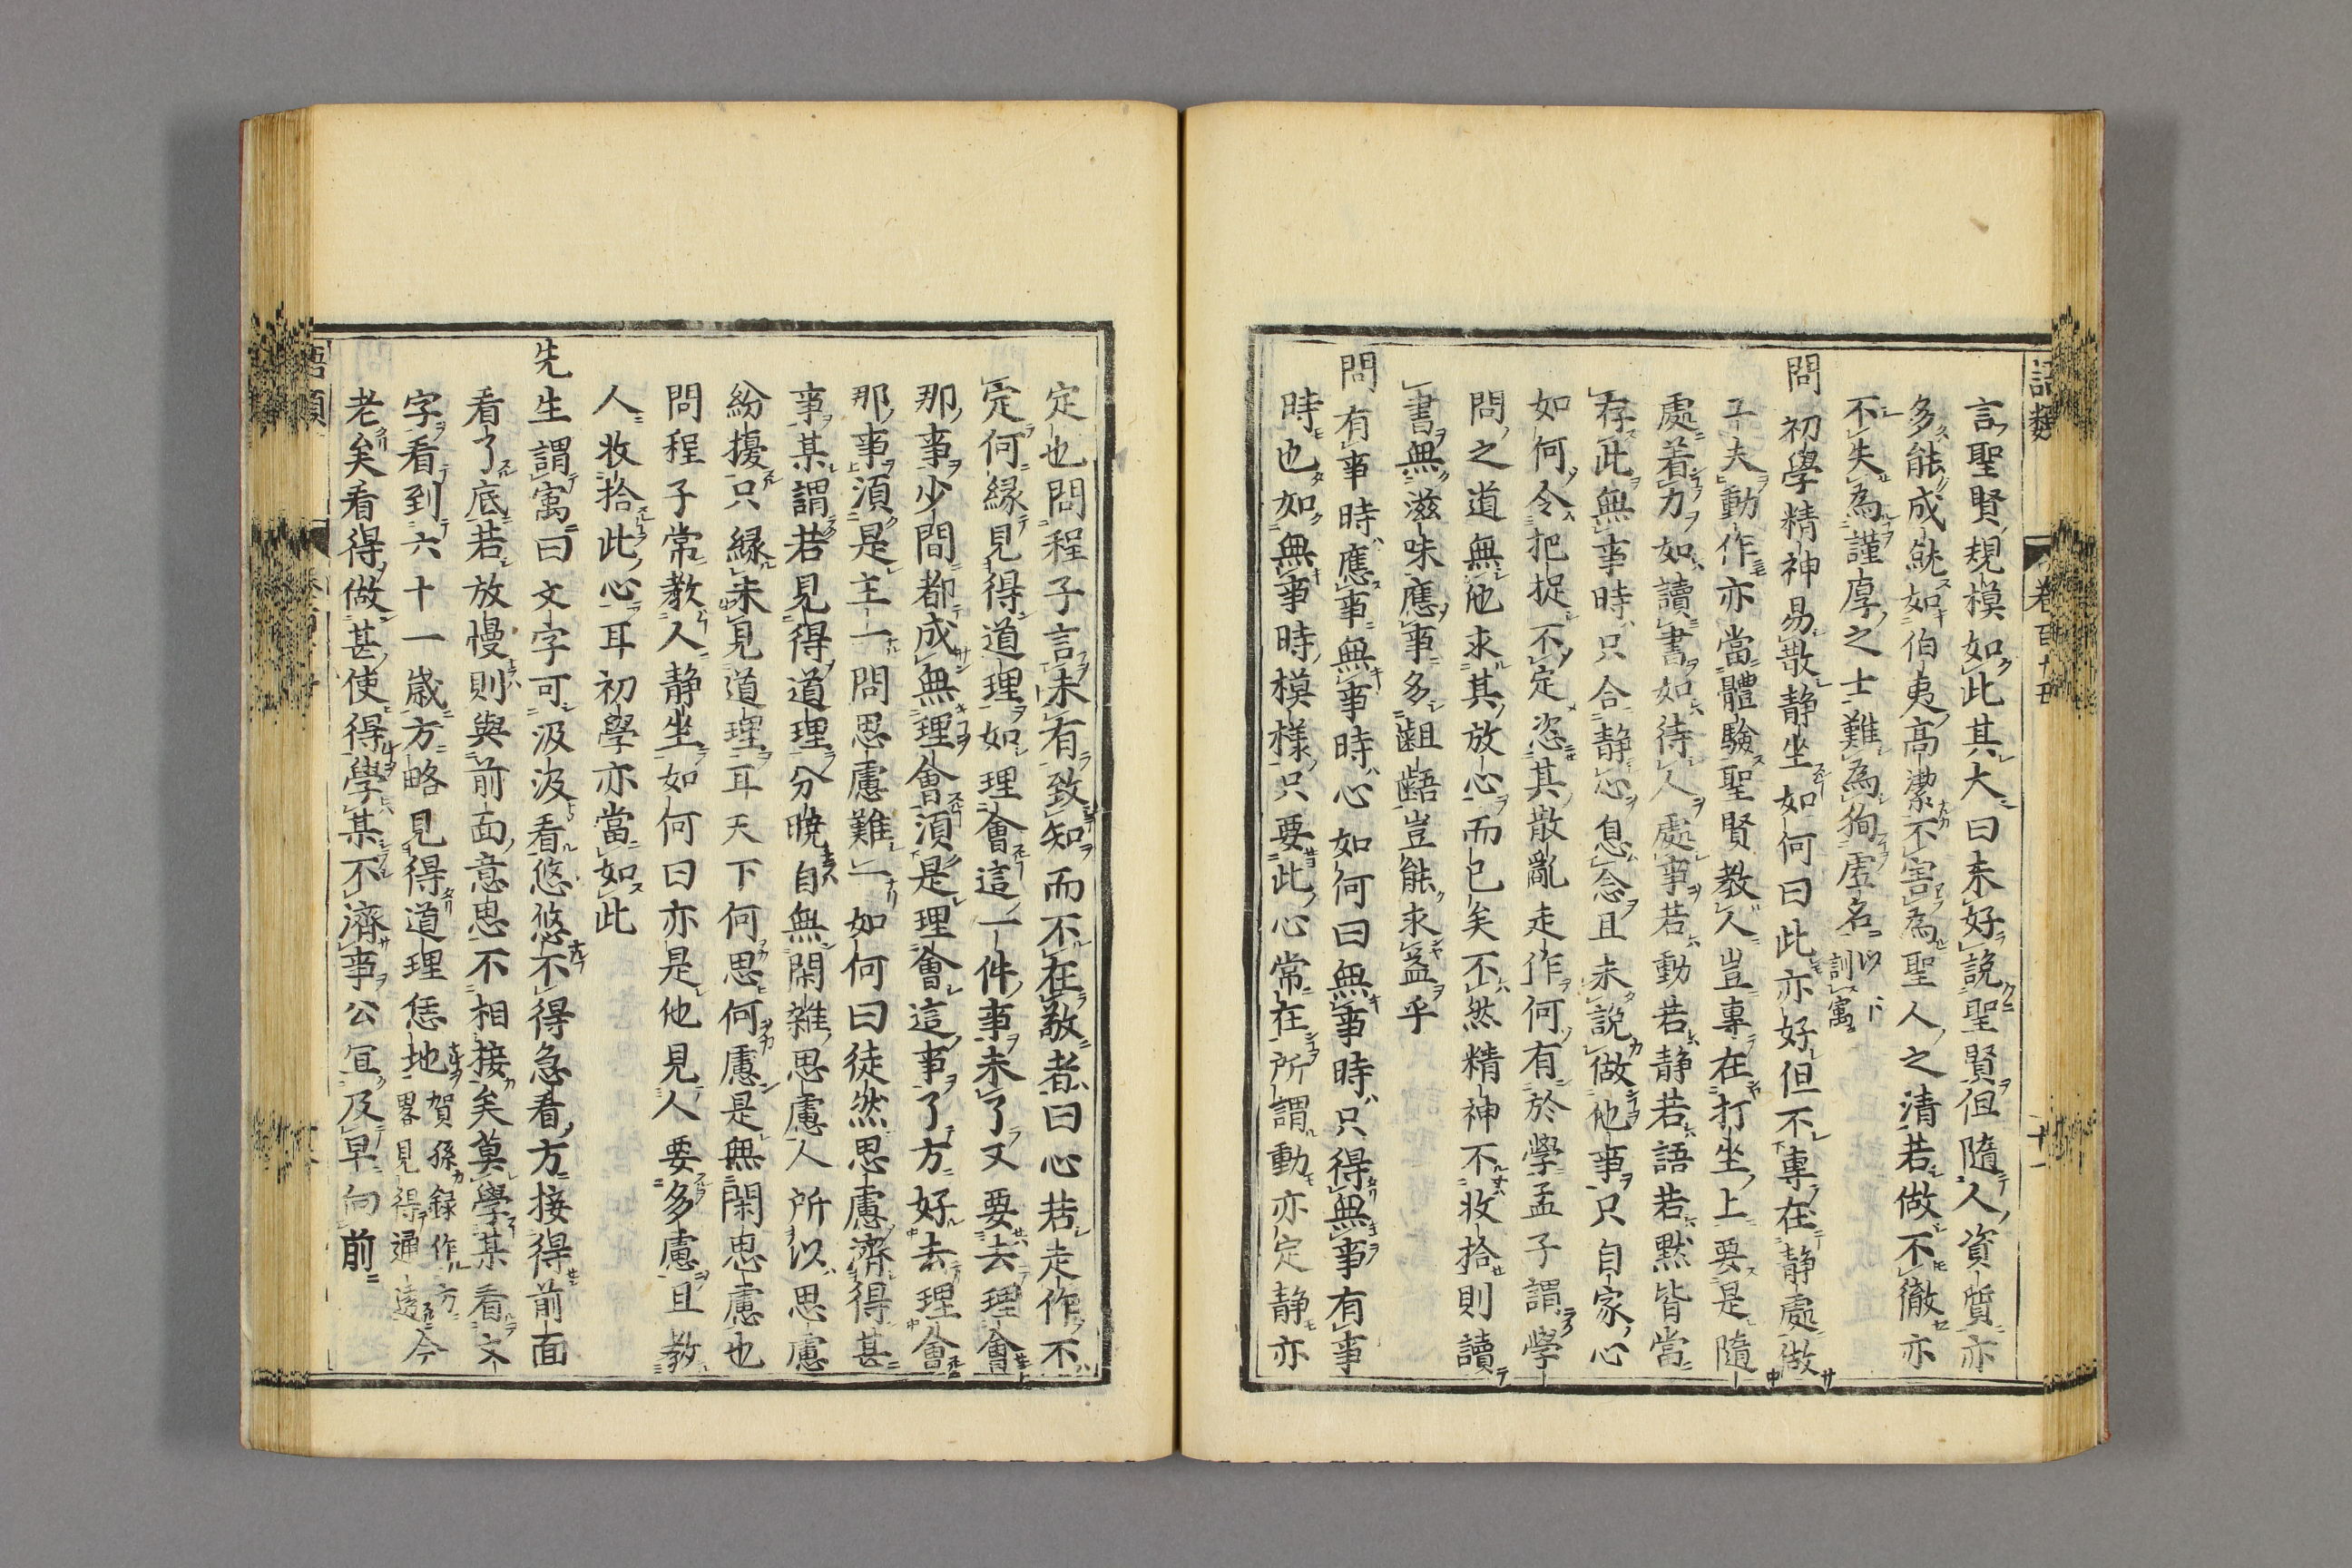 語類
卷百十五
十一
言聖賢規模如此其大曰未好說聖賢但隨人資質亦
多能成就如伯夷高潔不害為聖人之清若做不徹亦
不失為謹厚之士難為狥虚名以下訓㝢
問初學精神易散静坐如何曰此亦好但不專在静處做
工夫動作亦當體驗聖賢教人豈專在打坐上要是隨
處着力如讀書如待人處事若動若静若語若默皆當
存此無事時只合静心息念且未說做他事只自家心
如何令把捉不定恣其散亂走作何有於學孟子謂學
問之道無他求其放心而已矣不然精神不收拾則讀
書無滋味應事多齟齬豈能求益乎
問有事時應事無事時心如何曰無事時只得無事有事
時也如無事時模様只要此心常在所謂動亦定静亦
定也問程子言未有致知而不在敬者曰心若走作不
定何縁見得道理如理會這一件事未了又要去理會
那事少間都成無理會須是理會這事了方好去理會
那事須是主一問思慮難一如何曰徒然思慮濟得甚
事某謂若見得道理分曉自無閑雜思慮人所以思慮
紛擾只縁未見道理耳天下何思何慮是無閑思慮也
問程子常教人静坐如何曰亦是他見人要多慮且教
人收拾此心耳初學亦當如此
先生謂㝢曰文字可汲汲看悠悠不得急看方接得前面
看了底若放慢則與前面意思不相接矣莫學某看文
字看到六十一歲方略見得道理恁地賀孫録作方畧見得通透今
老矣看得做甚使得學某不濟事公宜及早向前
語類